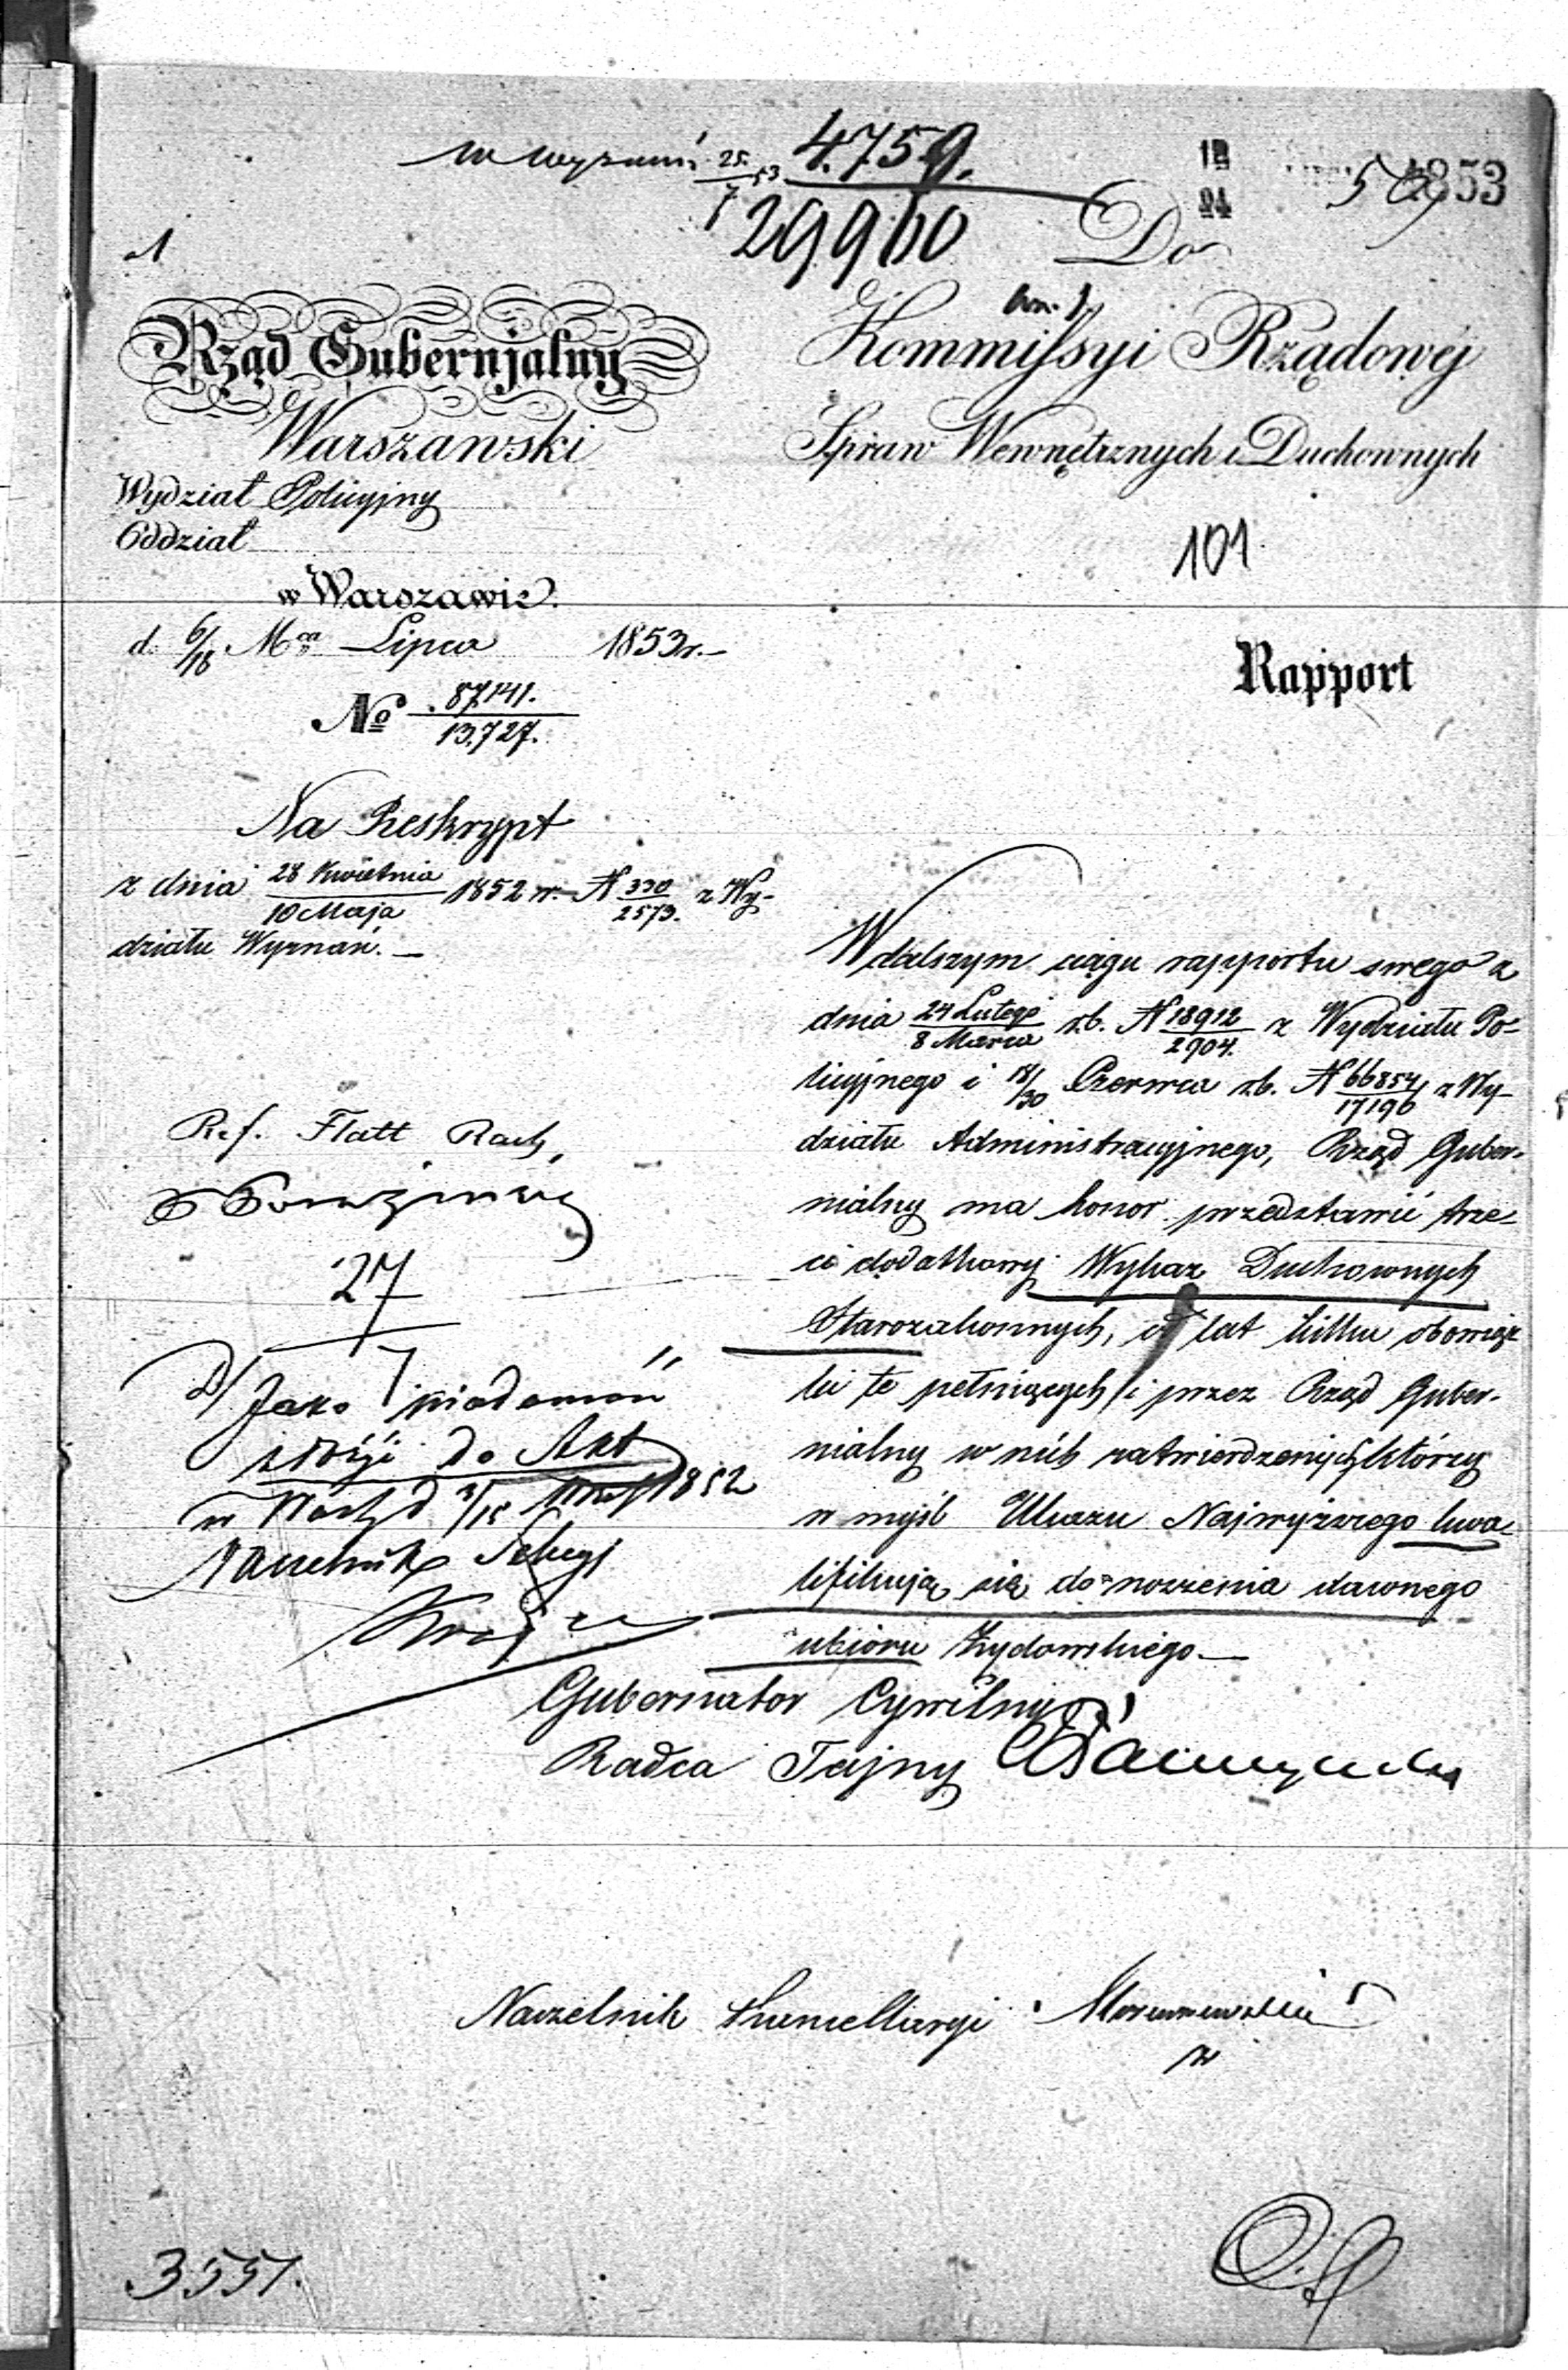 w wyznań 25/7 53 4.759.
29960
12
24
1853
Do
Kommissyi Rządowej
Spraw Wewnętrznych i Duchownych
101
Rapport
Rząd Gubernjalny
Warszawski
Wydział Policyjny
Oddział
w Warszawie.
d. 6/18 Mca Lipca 1853 r.
No 87,141./13,727.
Na Reskrypt
z dnia 28 Kwietnia/10 Maja 1852 r. N 330/2573. z Wy-
działu Wyznań.
W dalszym ciągu rapportu swego z
dnia 24 Lutego/8 Marca r.b. N 18912/2904. z Wydziału Po-
licyjnego i 18/30 Czerwca r.b. N 66854/17196 z Wy-
działu Administracyjnego, Rząd Guber-
nialny ma honor przedstawić trze-
ci dodatkowy Wykaz Duchownych
Starozakonnych, od lat kilku obowiąz
ki te pełniących i przez Rząd Guber-
nialny w nich zatwierdzonych, którzy
w myśl Ukazu Najwyższego kwa-
lifikują się do noszenia dawnego
ubioru Żydowskiego.
Ref. Flatt Rach.
27
Jako wiadomość
złożyć do Akt
w d. 3/15 1852
Naczelnik Sekcyi
Gubernator Cywilny
Radca Tajny
Naczelnik Kancellaryi
3551.